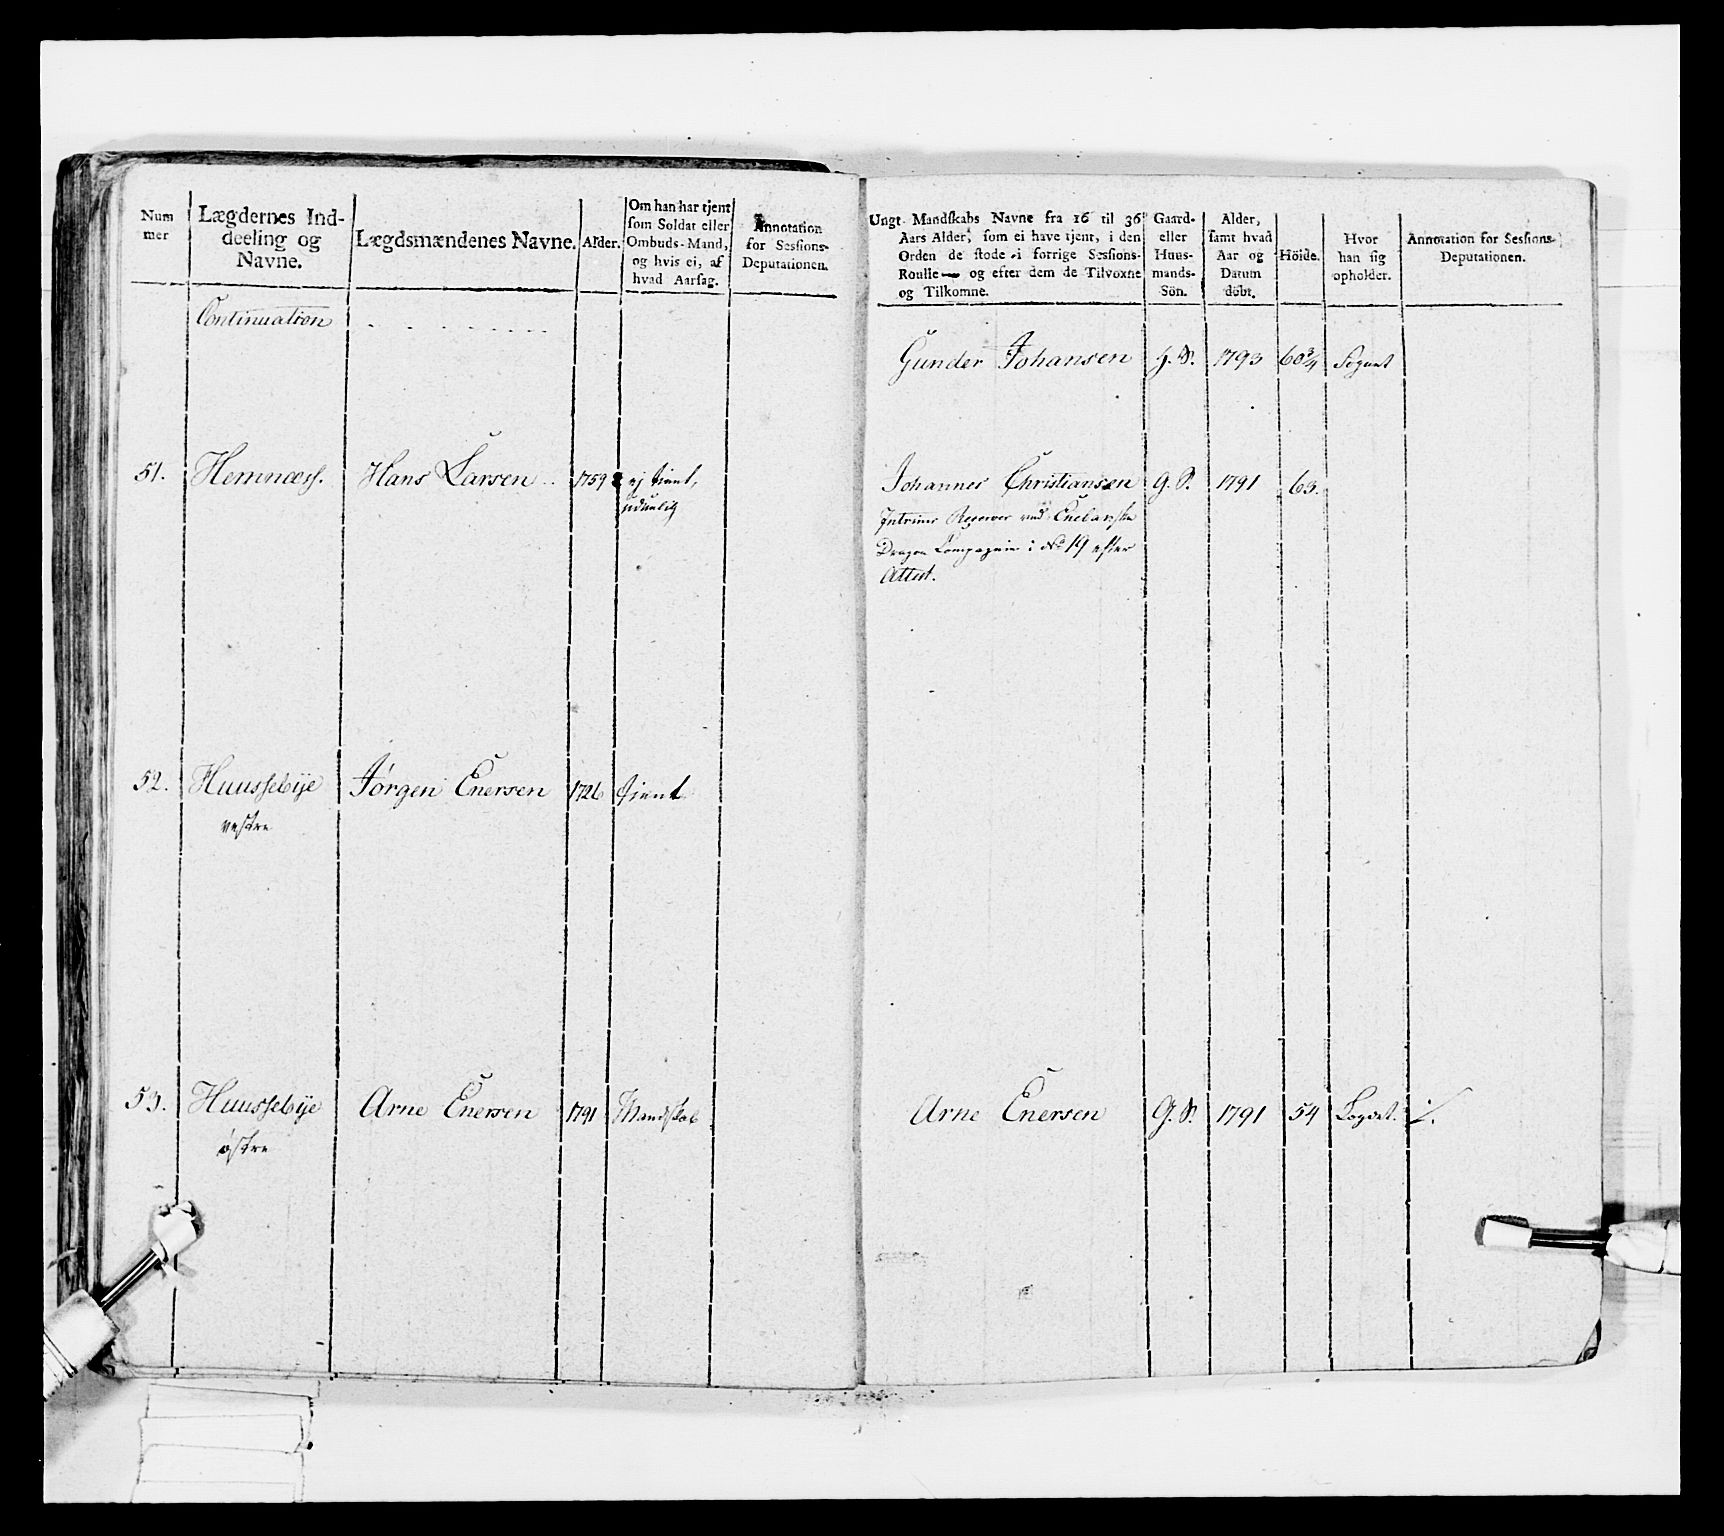 Num
mer
Lægdernes Ind-
deeling og
Navne.
Lægdsmændenes Navne.
Alder.
Om han har tjent
som Soldat eller
Ombuds-Mand,
og hvis ei, af
hvad Aarsag.
Annotation
for Sessions-
Deputationen.
Ungt Mandskabs Navne fra 16 til 36
Aars Alder, som ei have tjent, i den
Orden de stode i forrige Sessions-
Roulle — og efter dem de Tilvoxne
og Tilkomne.
Gaard-
eller
Huus-
mands-
Sön.
Alder,
samt hvad
Aar og
Datum
döbt.
Höide.
Hvor
han sig
opholder.
Annotation for Sessions-
Deputationen.
Continuation . . . . . . . . .
Gunder Johansen G. S. 1793 60 3/4 Sognet
51. Hemnæss. Hans Larsen .. 1759 ej tient,
uduelig
Johannes Christiansen G. S. 1791 63.
Intrims Reserver ved Enebakske
Dragon Compagnie i No 19 efter
Attest.
52. Huussebye Jørgen Enersen 1726 tient
vestre
53. Huussebye Arne Enersen 1791 Mandskab
østre
Arne Enersen G. S. 1791 54 Logdet. ./.